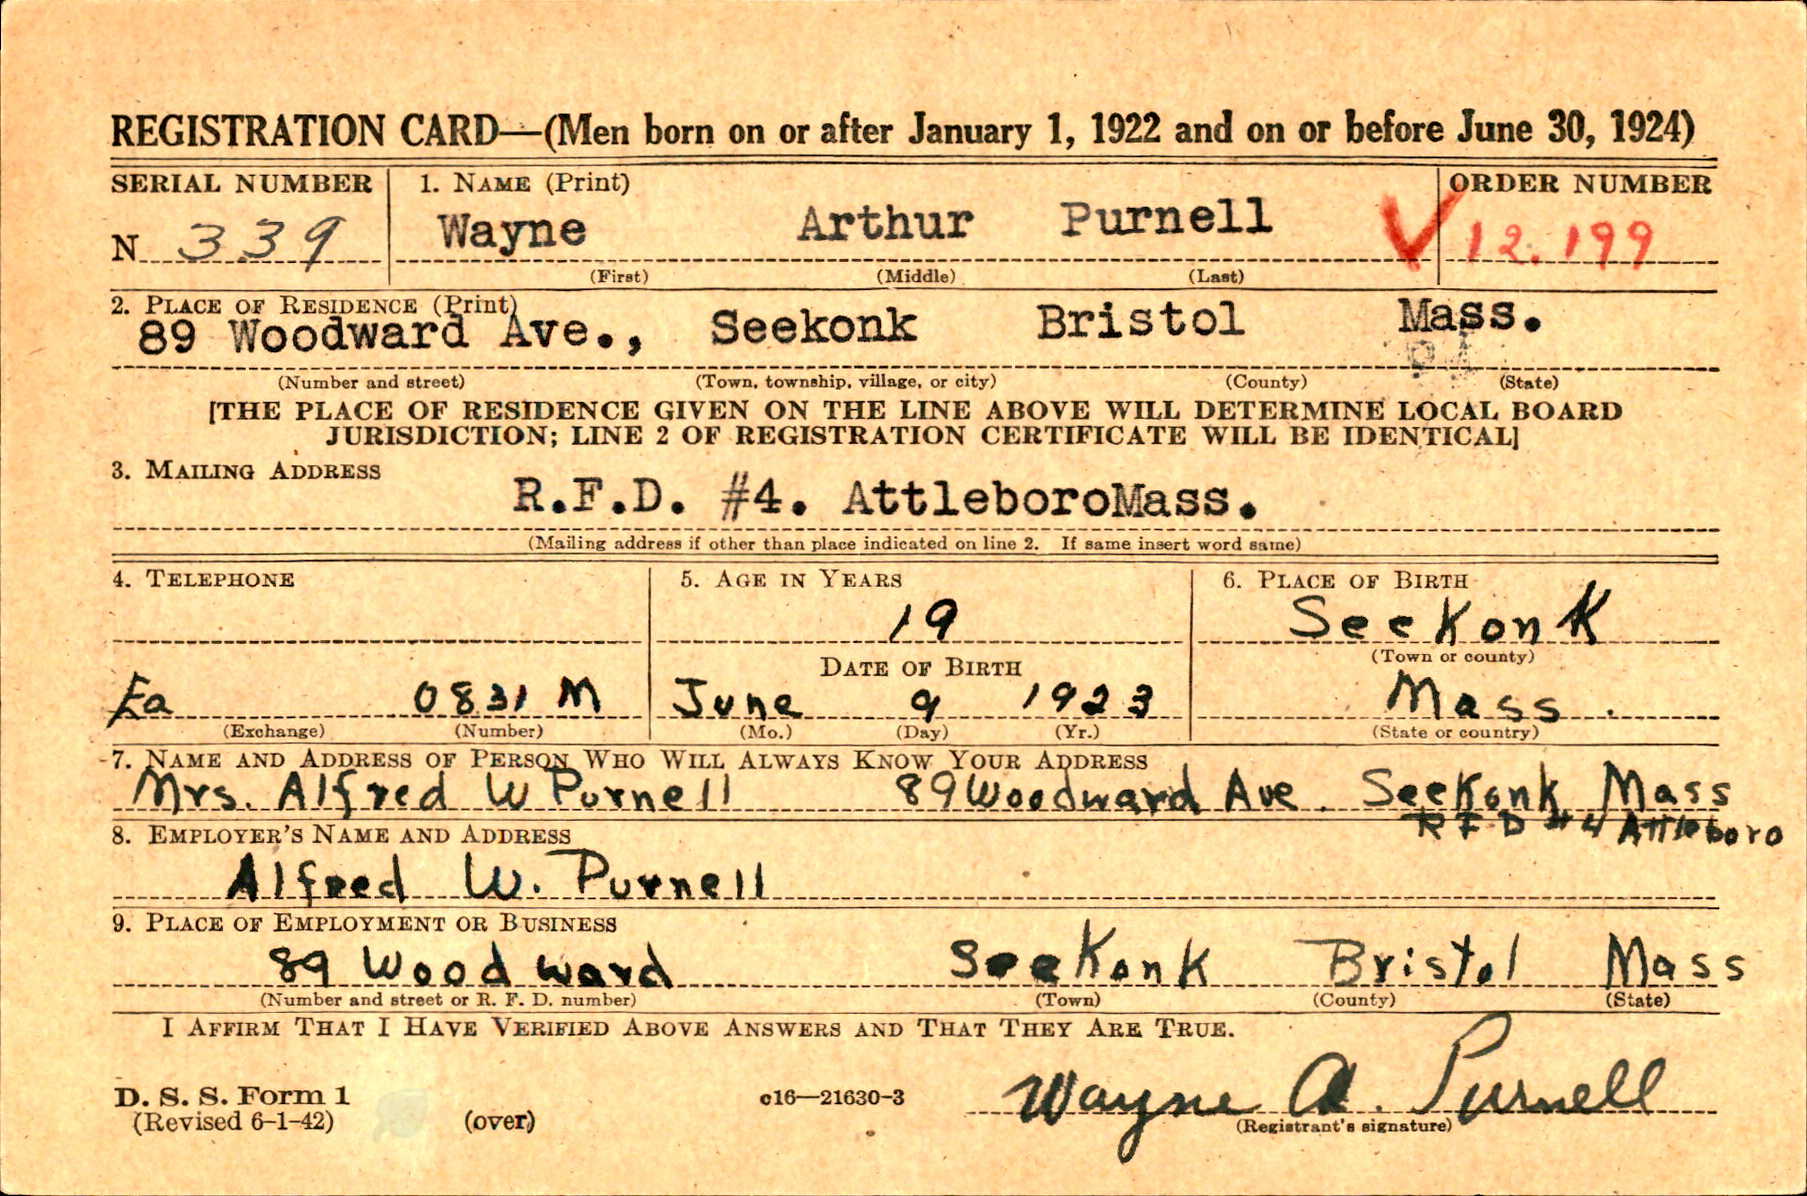 REGISTRATION CARD—(Men born on or after January 1, 1922 and on or before June 30, 1924)
SERIAL NUMBER
1. NAME (Print)
ORDER NUMBER
N 339
Wayne Arthur Purnell
V 12.199
(First) (Middle) (Last)
2. PLACE OF RESIDENCE (Print)
89 Woodward Ave., Seekonk Bristol Mass.
(Number and street) (Town, township, village, or city) (County) (State)
[THE PLACE OF RESIDENCE GIVEN ON THE LINE ABOVE WILL DETERMINE LOCAL BOARD
JURISDICTION; LINE 2 OF REGISTRATION CERTIFICATE WILL BE IDENTICAL]
3. MAILING ADDRESS
R.F.D. #4. AttleboroMass.
(Mailing address if other than place indicated on line 2. If same insert word same)
4. TELEPHONE
5. AGE IN YEARS
6. PLACE OF BIRTH
19
SeeKonK
(Town or county)
DATE OF BIRTH
Ea 0831 M
June 9 1923
Mass.
(Exchange) (Number)
(Mo.) (Day) (Yr.)
(State or country)
7. NAME AND ADDRESS OF PERSON WHO WILL ALWAYS KNOW YOUR ADDRESS
Mrs. Alfred W Purnell 89 Woodward Ave. SeeKonk Mass
R F D #4 Attleboro
8. EMPLOYER'S NAME AND ADDRESS
Alfred W. Purnell
9. PLACE OF EMPLOYMENT OR BUSINESS
89 Woodward SeeKonK Bristol Mass
(Number and street or R. F. D. number) (Town) (County) (State)
I AFFIRM THAT I HAVE VERIFIED ABOVE ANSWERS AND THAT THEY ARE TRUE.
D. S. S. Form 1
(Revised 6-1-42) (over)
c16—21630-3
Wayne A. Purnell
(Registrant's signature)